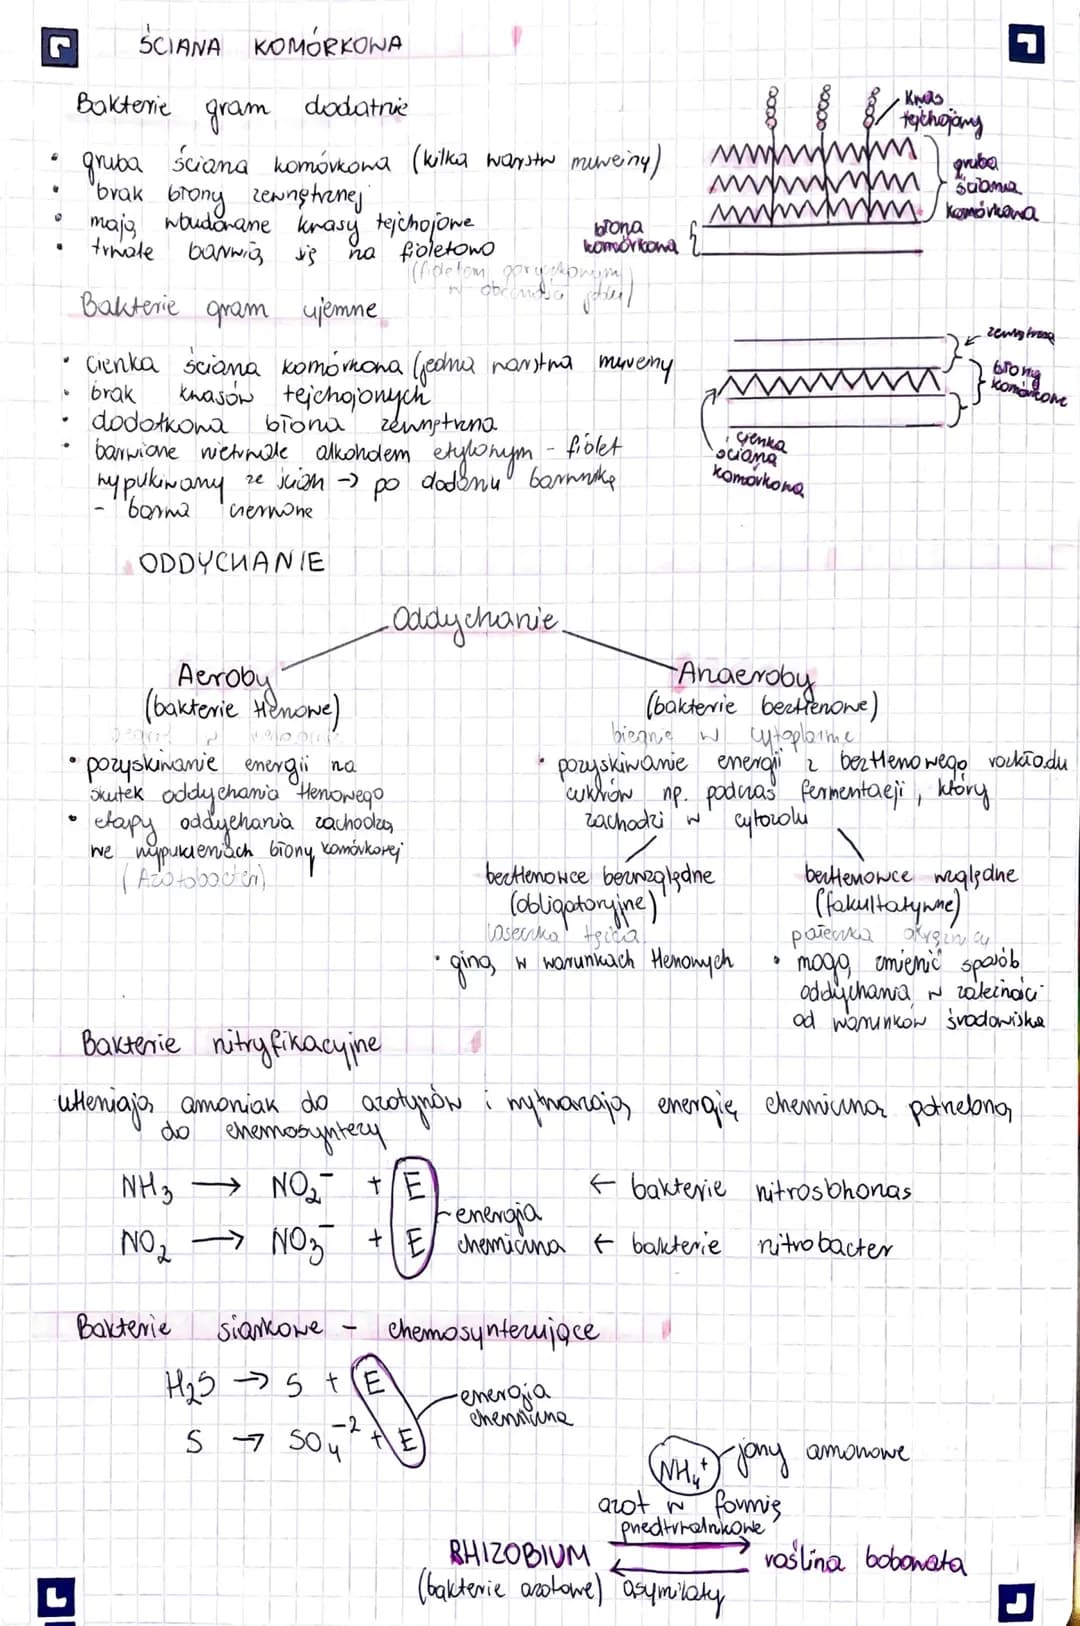 ŚCIANA KOMÓRKOWA
Bakterie gram dodatnie
• gruba ściana komórkowa (kilka warstw mureiny)
• brak błony zewnętrznej
• mają wbudowane kwasy tejchojowe
• trwale barwią się na fioletowo
(fioletem goryczkowym
w obecności jodu)
kwas
tejchojowy
gruba
ściana
komórkowa
błona
komórkowa
Bakterie gram ujemne
• cienka ściana komórkowa (jedna warstwa mureiny
• brak kwasów tejchojowych
• dodatkowa błona zewnętrzna
• barwione nietrwale alkoholem etylowym - fiolet
wypukiwany ze ścian → po dodaniu barwnika
- barwa czerwone
zewnętrzna
błony
komórkowe
cienka
ściana
komórkowa
ODDYCHANIE
Oddychanie
Aeroby
(bakterie tlenowe)
• pozyskiwanie energii na
skutek oddychania tlenowego
• etapy oddychania zachodzą
we wypukleniach błony komórkowej
(Azotobacter)
Anaeroby
(bakterie beztlenowe)
biegnie w cytoplazmie
• pozyskiwanie energii z beztlenowego rozkładu
cukrów np. podczas fermentacji, który
zachodzi w cytozolu
beztlenowce bezwzględne
(obligatoryjne)
laseczka tężca
• giną w warunkach tlenowych
beztlenowce względne
(fakultatywne)
pałeczka okrężnicy
• mogą zmienić sposób
oddychania w zależności
od warunków środowiska
Bakterie nitryfikacyjne
utleniają amoniak do azotynów i wytwarzają energię chemiczną potrzebną
do chemosyntezy
NH3 → NO2⁻ + E ← bakterie nitrosbhonas
NO2 → NO3⁻ + E ← bakterie nitrobacter
energia
chemiczna
Bakterie siarkowe - chemosyntezujące
H2S → S + E
S → SO4⁻² + E
energia
chemiczna
NH4⁺ jony amonowe
azot w formię
przedtrolnkowe
RHIZOBIUM
(bakterie azotowe)
asymilaty
roślina bobowata